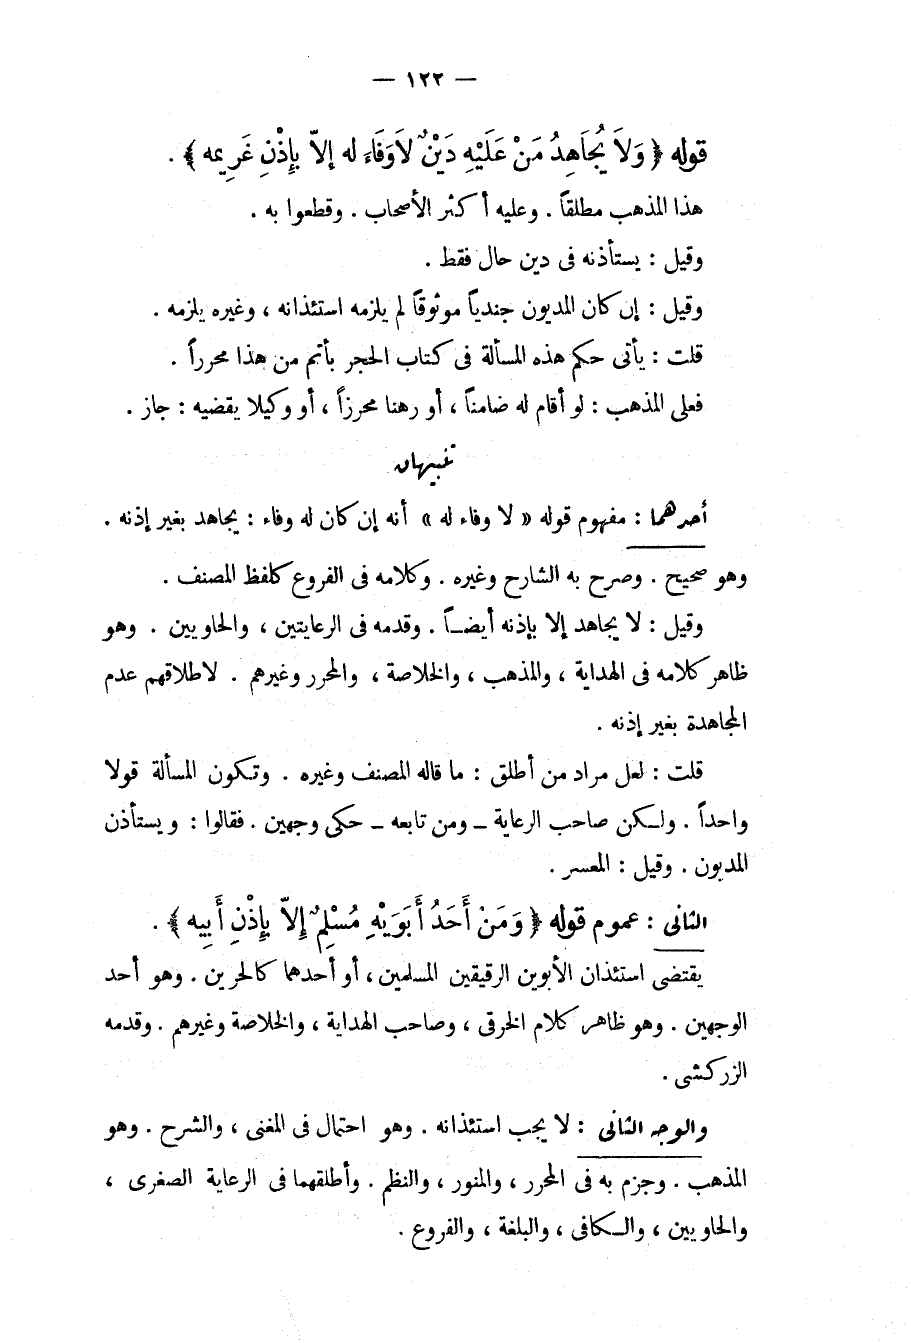 — ١٢٢ —
قوله ﴿ وَلاَ يُجَاهِدُ مَنْ عَلَيْهِ دَيْنٌ لاَوَفَاءَ له إلاّ بِإِذْنِ غَرِيمه ﴾ .
هذا المذهب مطلقاً . وعليه أكثر الأصحاب . وقطعوا به .
وقيل : يستأذنه فى دين حال فقط .
وقيل : إن كان المديون جندياً موثوقاً لم يلزمه استئذانه ، وغيره يلزمه .
قلت : يأتى حكم هذه المسألة فى كتاب الحجر بأتم من هذا محرراً .
فعلى المذهب : لو أقام له ضامناً ، أو رهنا محرزاً ، أو وكيلا يقضيه : جاز .
تنبيهان
أحدهما : مفهوم قوله « لا وفاء له » أنه إن كان له وفاء : يجاهد بغير إذنه .
وهو صحيح . وصرح به الشارح وغيره . وكلامه فى الفروع كلفظ المصنف .
وقيل : لا يجاهد إلا بإذنه أيضـاً . وقدمه فى الرعايتين ، والحاويين . وهو
ظاهر كلامه فى الهداية ، والمذهب ، والخلاصة ، والمحرر وغيرهم . لاطلاقهم عدم
المجاهدة بغير إذنه .
قلت : لعل مراد من أطلق : ما قاله المصنف وغيره . وتكون المسألة قولا
واحداً . ولـكن صاحب الرعاية ـ ومن تابعه ـ حكى وجهين . فقالوا : ويستأذن
المديون . وقيل : المعسر .
الثانى : عموم قوله ﴿ وَمَنْ أَحَدُ أَبَوَيْهِ مُسْلِمٌ إلاّ بِإِذْنِ أَبِيه ﴾ .
يقتضى استئذان الأبوين الرقيقين المسلمين ، أو أحدهما كالحرين . وهو أحد
الوجهين . وهو ظاهر كلام الخرقى ، وصاحب الهداية ، والخلاصة وغيرهم . وقدمه
الزركشى .
والوجه الثانى : لا يجب استئذانه . وهو احتمال فى المغنى ، والشرح . وهو
المذهب . وجزم به فى المحرر ، والمنور ، والنظم . وأطلقهما فى الرعاية الصغرى ،
والحاويين ، والـكافى ، والبلغة ، والفروع .